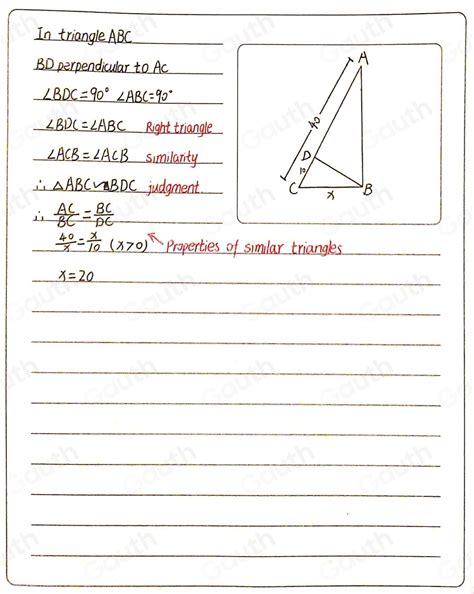 In triangle ABC
BD perpendicular to AC
∠BDC=90° ∠ABC=90°
∠BDC=∠ABC Right triangle
∠ACB=∠ACB similarity
∴ △ABC∽△BDC judgment.
∴ AC/BC = BC/DC
40/x = x/10 (x>0) Properties of similar triangles
x=20
A
40
D
10
C
x
B
Gauth